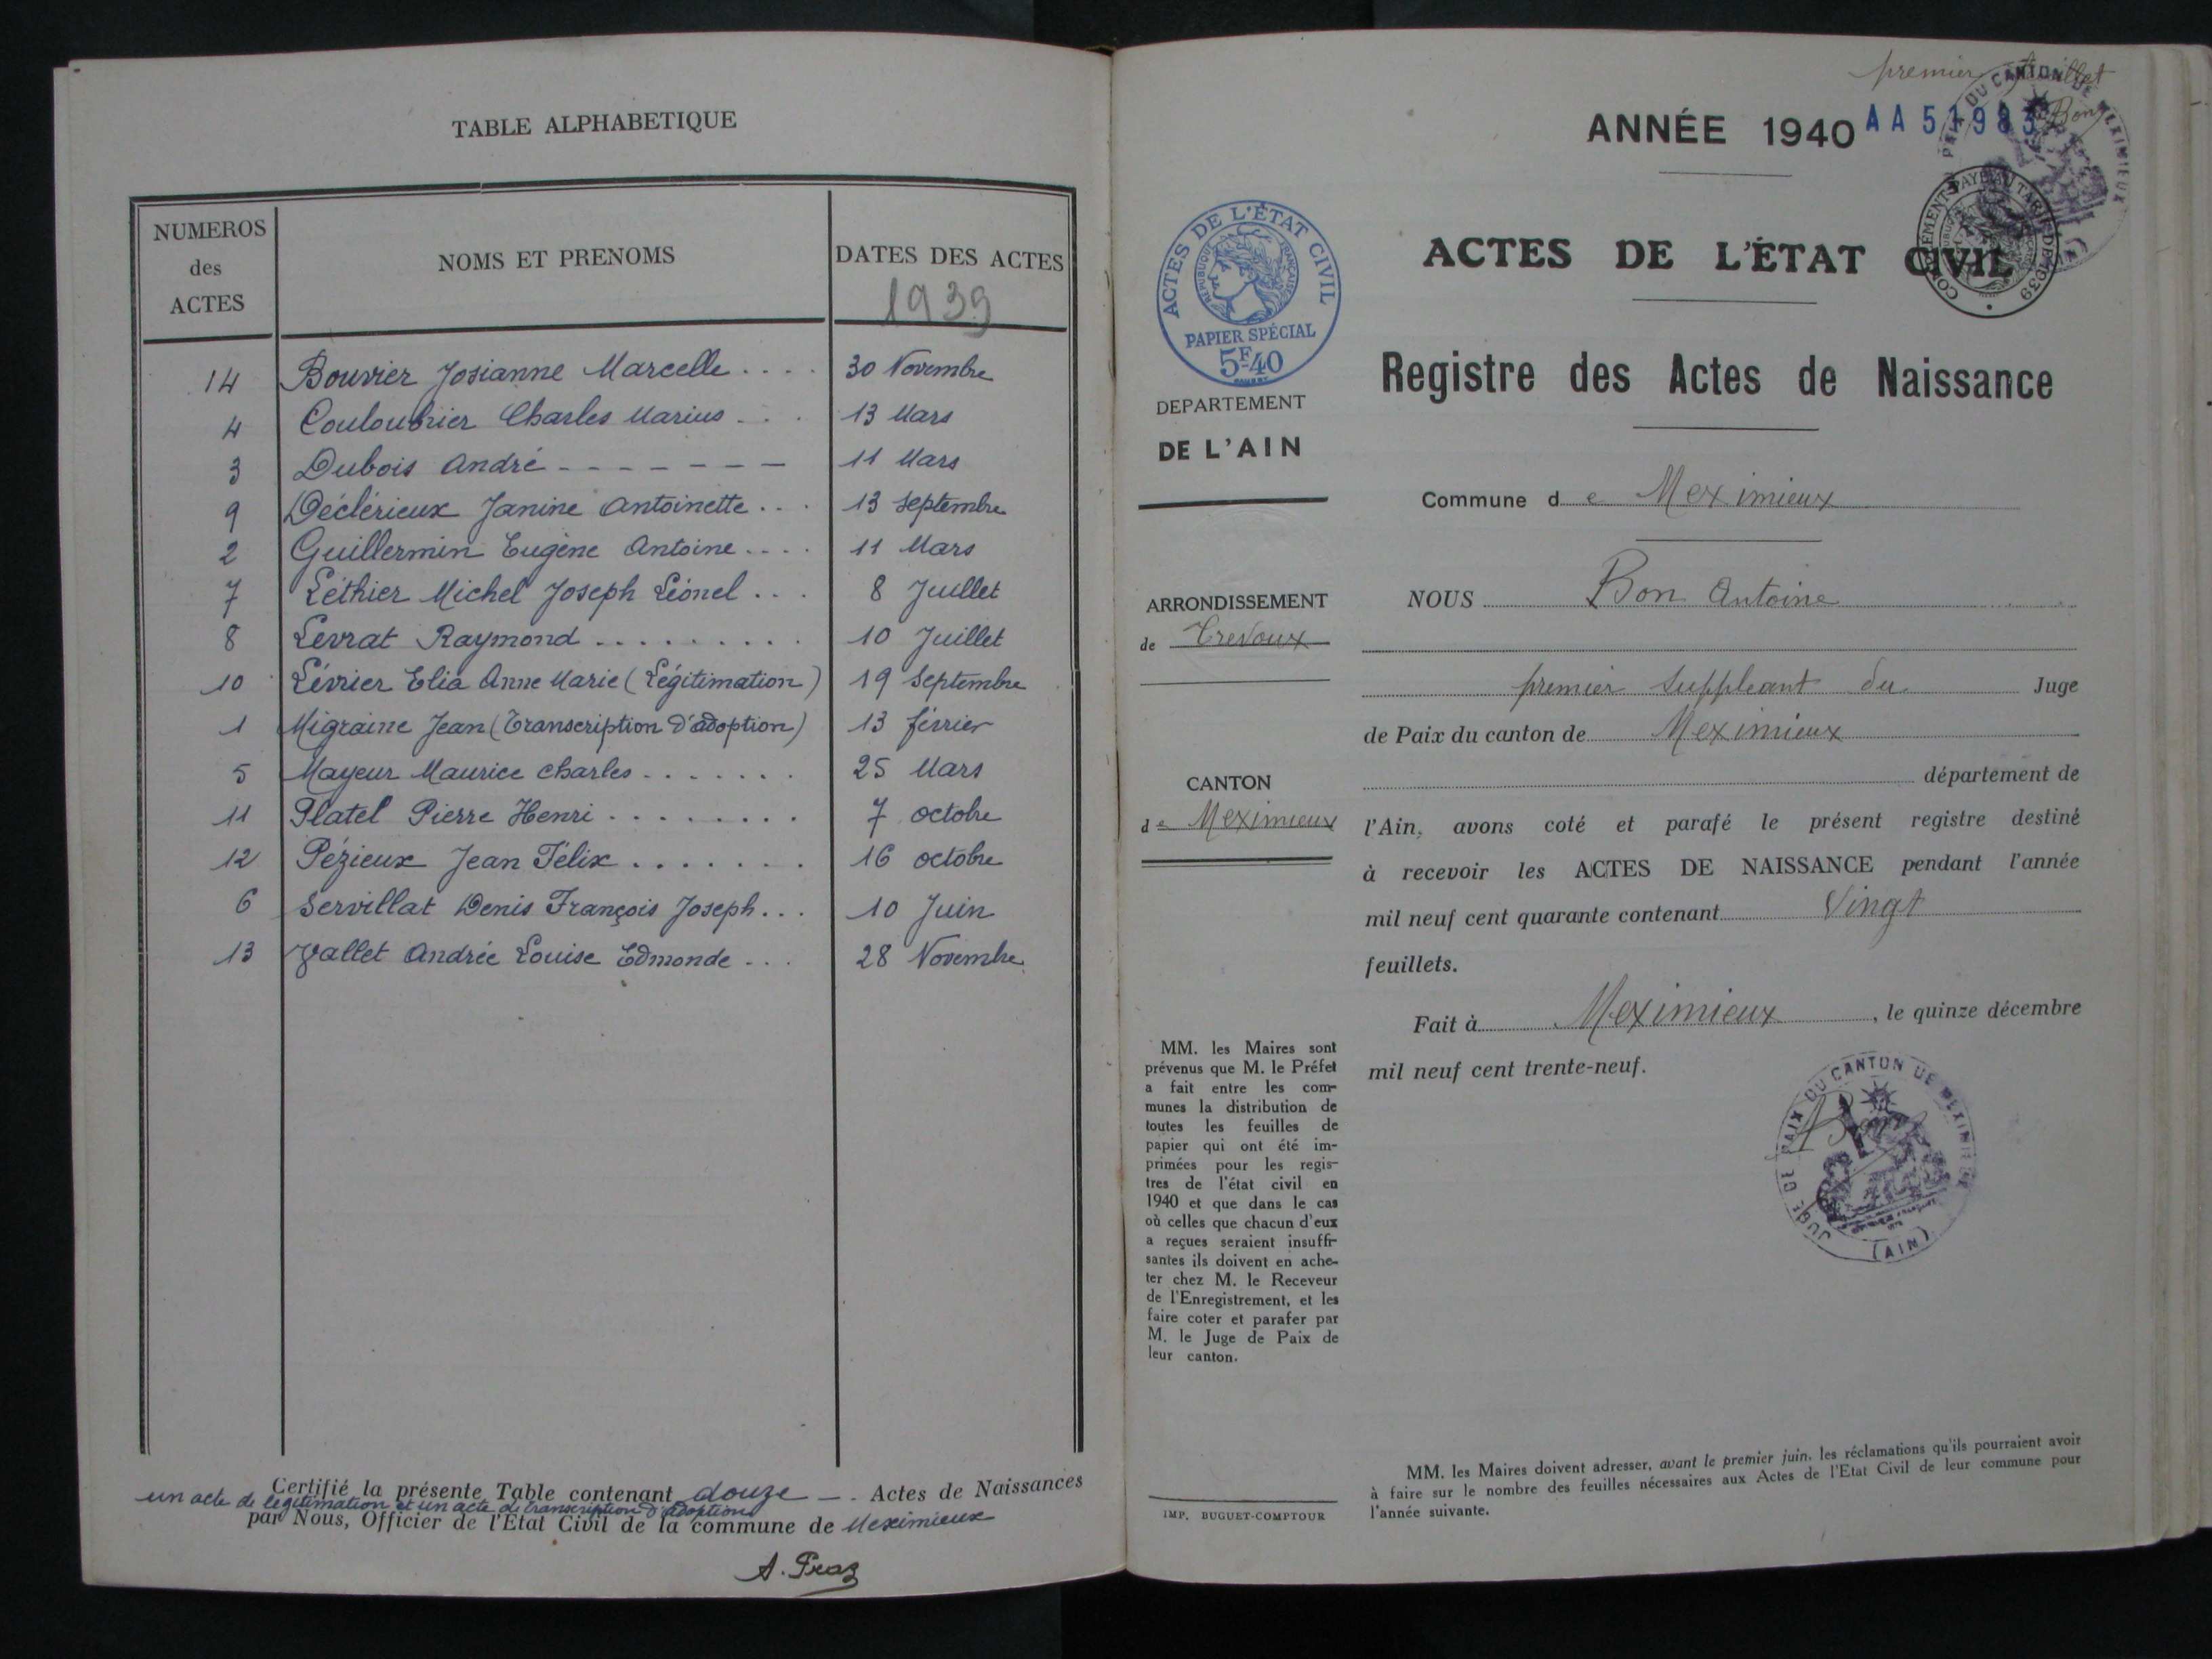 TABLE ALPHABETIQUE
NUMEROS
des
ACTES
NOMS ET PRENOMS
DATES DES ACTES
1939
14 Bouvier Josianne Marcelle .... 30 Novembre
4 Couloubrier Charles Marius ... 13 Mars
3 Dubois André - - - - - - - 11 Mars
9 Déclérieux Janine Antoinette ... 13 Septembre
2 Guillermin Eugène Antoine .... 11 Mars
7 Léthier Michel Joseph Léonel ... 8 Juillet
8 Levrat Raymond ......... 10 Juillet
10 Lévrier Elia Anne Marie (Légitimation) 19 Septembre
1 Migraine Jean (Transcription d'adoption) 13 février
5 Mayeur Maurice Charles ....... 25 Mars
11 Platel Pierre Henri ......... 7 octobre
12 Pézieux Jean Félix ....... 16 octobre
6 Servillat Denis François Joseph ... 10 Juin
13 Vallet Andrée Louise Edmonde ... 28 Novembre
Certifié la présente Table contenant douze - . Actes de Naissances
un acte de légitimation et un acte de transcription d'adoption
par Nous, Officier de l'Etat Civil de la commune de Meximieux
A. Praz
premier feuillet
Bon
ANNÉE 1940
ACTES DE L'ÉTAT CIVIL
ACTES DE L'ÉTAT CIVIL
RÉPUBLIQUE FRANÇAISE
PAPIER SPÉCIAL
5F40
Registre des Actes de Naissance
DEPARTEMENT
DE L'AIN
Commune de Meximieux
ARRONDISSEMENT
de Trevoux
NOUS Bon Antoine
premier suppleant du Juge
de Paix du canton de Meximieux
CANTON
de Meximieux
département de
l'Ain, avons coté et parafé le présent registre destiné
à recevoir les ACTES DE NAISSANCE pendant l'année
mil neuf cent quarante contenant Vingt
feuillets.
Fait à Meximieux, le quinze décembre
mil neuf cent trente-neuf.
JUGE DE PAIX DU CANTON DE MEXIMIEUX
(AIN)
MM. les Maires sont
prévenus que M. le Préfet
a fait entre les com-
munes la distribution de
toutes les feuilles de
papier qui ont été im-
primées pour les regis-
tres de l'état civil en
1940 et que dans le cas
où celles que chacun d'eux
a reçues seraient insuffi-
santes ils doivent en ache-
ter chez M. le Receveur
de l'Enregistrement, et les
faire coter et parafer par
M. le Juge de Paix de
leur canton.
IMP. BUGUET-COMPTOUR
MM. les Maires doivent adresser, avant le premier juin, les réclamations qu'ils pourraient avoir
à faire sur le nombre des feuilles nécessaires aux Actes de l'Etat Civil de leur commune pour
l'année suivante.